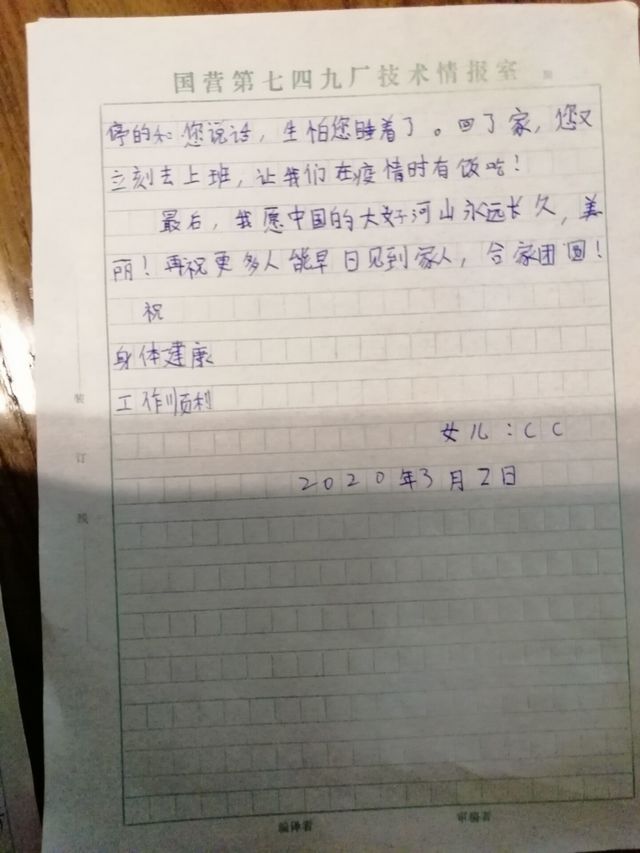 国营第七四九厂技术情报室
停的和您说话，生怕您睡着了。回了家，您又
立刻去上班，让我们在疫情时有饭吃！
最后，我愿中国的大好河山永远长久，美
丽！再祝更多人能早日见到家人，合家团圆！
祝
身体建康
工作顺利
女儿：CC
2020年3月2日
装
订
线